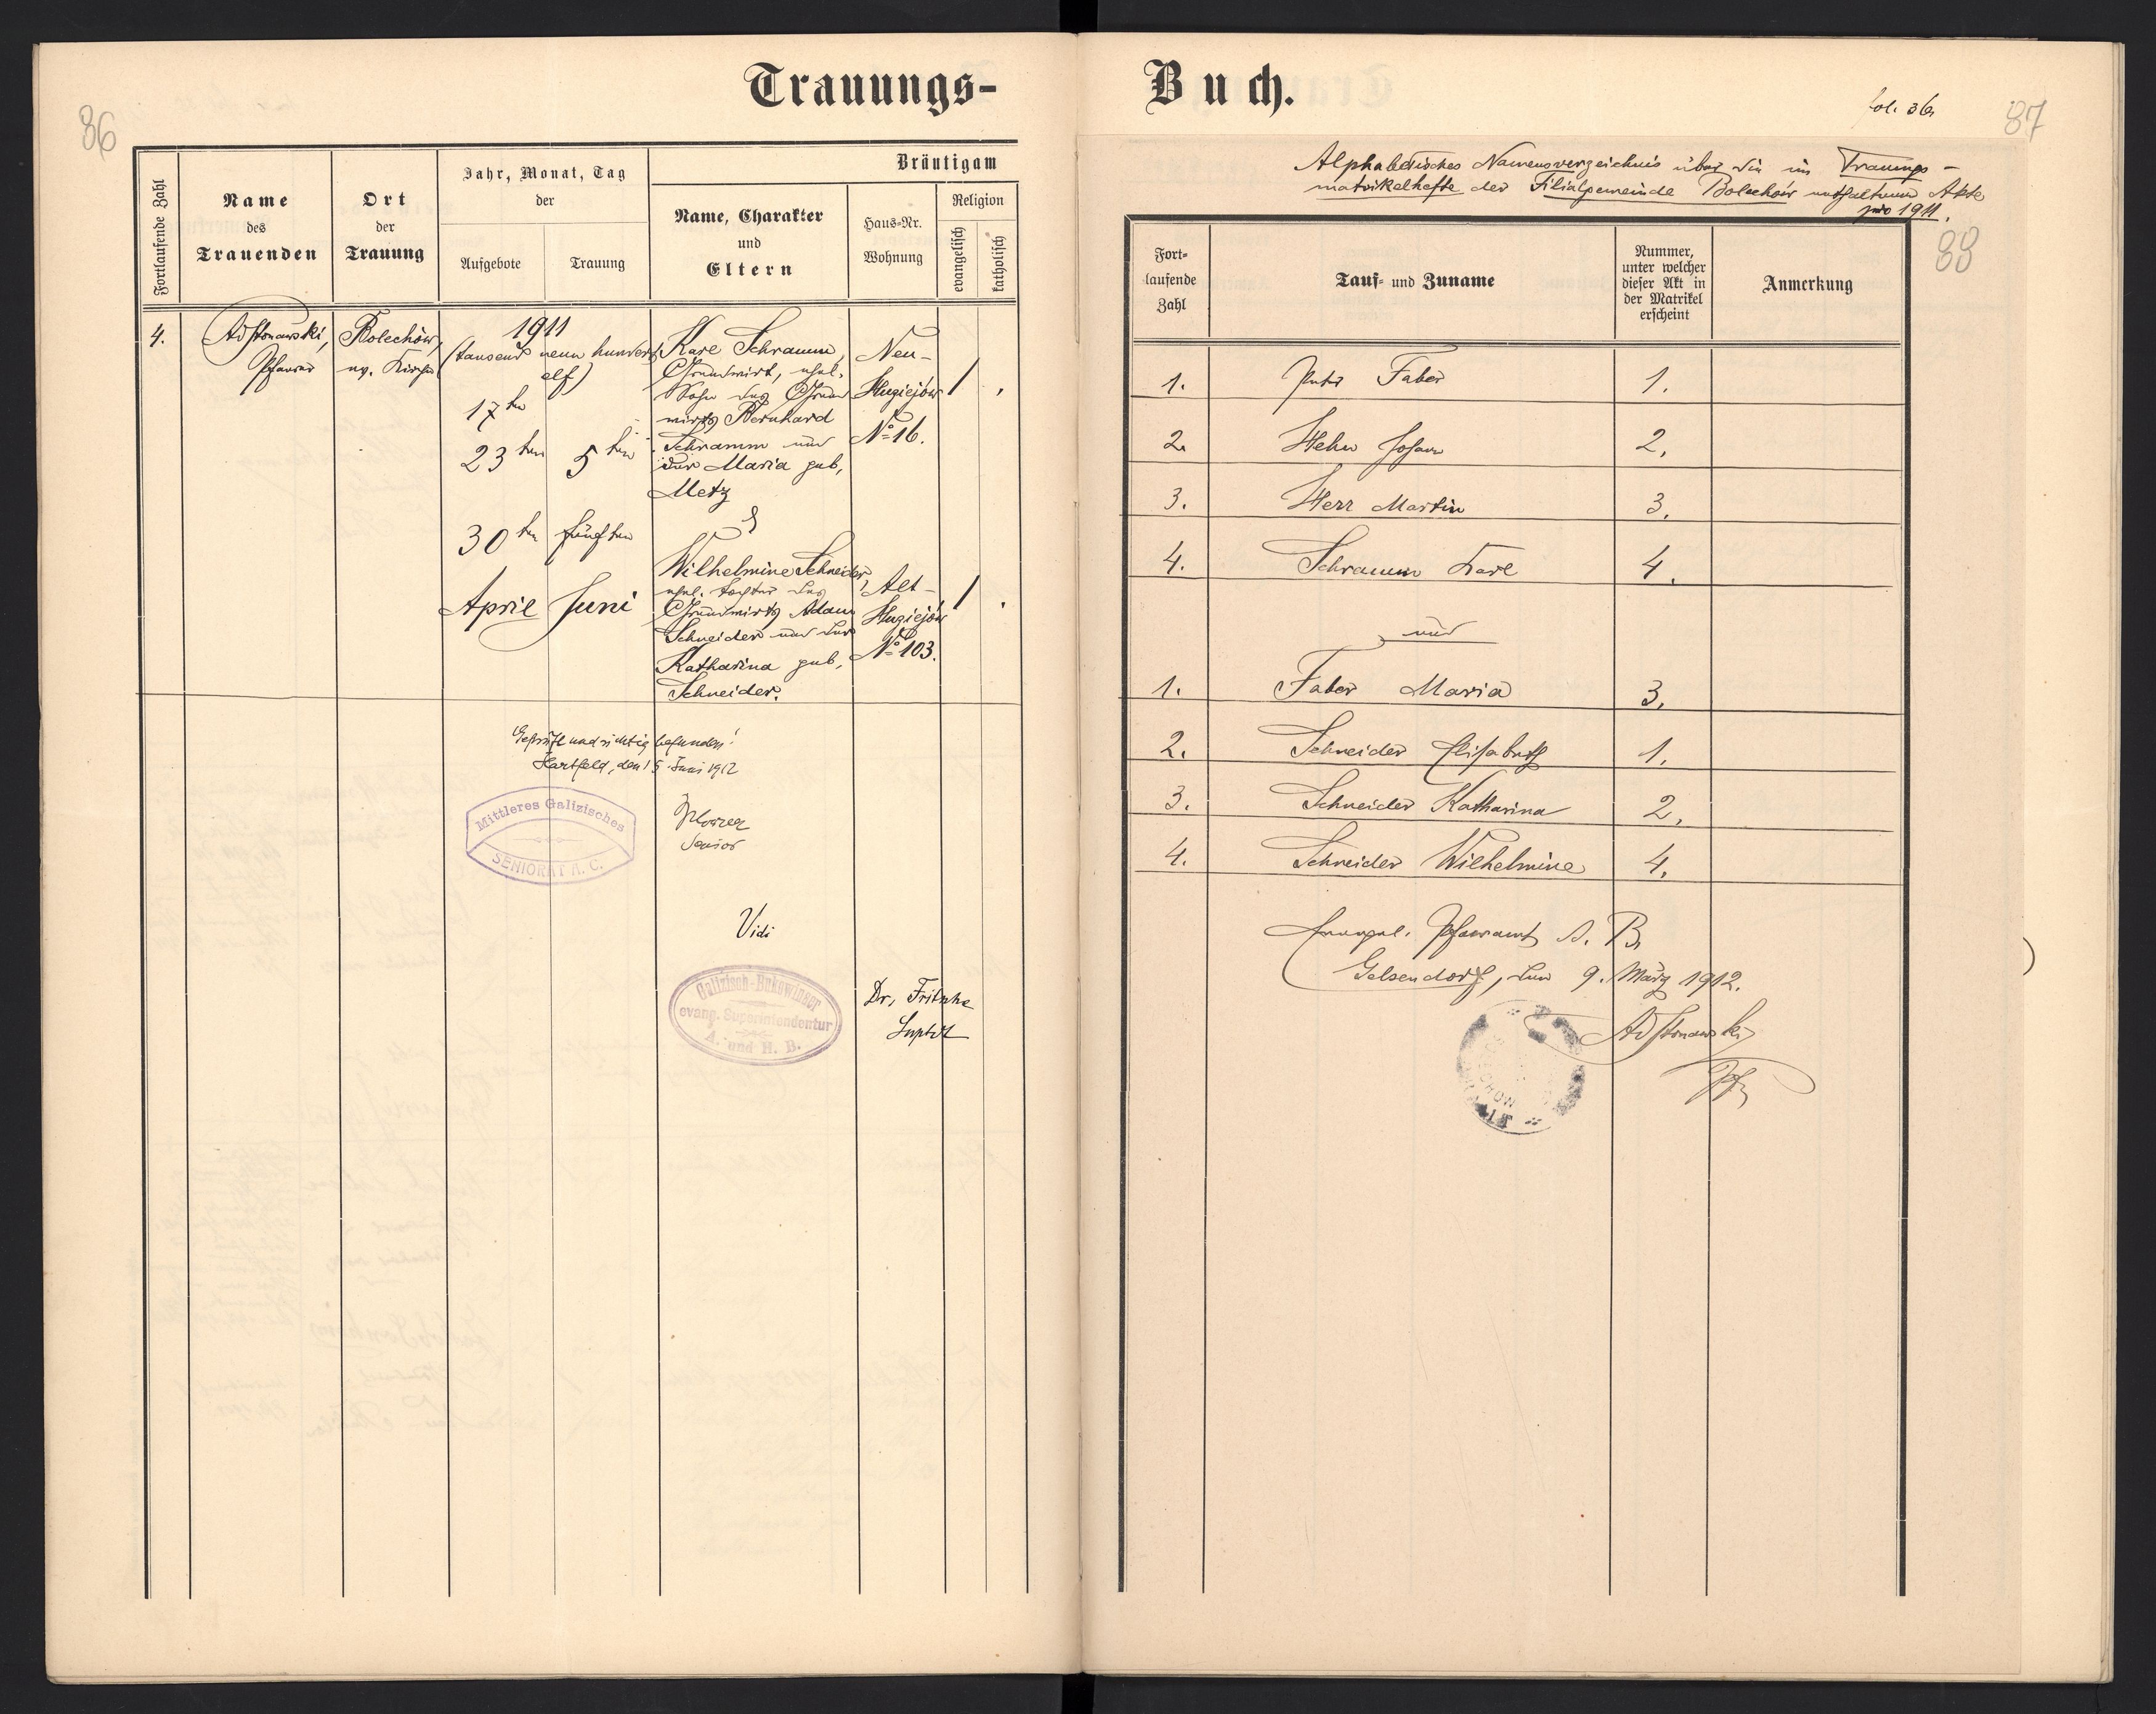 Trauungs-
86
Fortlaufende Zahl
Name
des
Trauenden
Ort
der
Trauung
Jahr, Monat, Tag
der
Aufgebote
Trauung
Bräutigam
Name, Charakter
und
Eltern
Haus-Nr.
Wohnung
Religion
evangelisch
katholisch
4.
Pfarrer
Bolechów,
ev. Kirche
1911
(tausend neun hundert
elf)
17ten
23ten
30ten
April
5ten
fünften
Juni
Karl Schramm,
Grundwirt, ehel.
Sohn des Grund
wirts Bernhard
Schramm und
der Maria geb.
Metz
Neu-
Hugiejów
№ 16.
&
Wilhelmine Schneider,
ehel. Tochter des
Grundwirts Adam
Schneider und der
Katharina geb.
Schneider.
Alt-
Hugiejów
№ 103.
Geprüft und richtig befunden!
Hartfeld, den 15. Juni 1912
Mittleres Galizisches
SENIORAT A. C.
Senior
Vidi
Galizisch-Bukowinaer
evang. Superintendentur
A. und H. B.
Dr. Fritsche
Suptdt
Buch.
fol. 36
87
Alphabetisches Namensverzeichnis über die im Trauungs-
matrikelhefte der Filialgemeinde Bolechów enthaltenen Akte
pro 1911.
88
Fort-
laufende
Zahl
Tauf- und Zuname
Nummer,
unter welcher
dieser Akt in
der Matrikel
erscheint
Anmerkung
1. Peter Faber 1.
2. Hehn Johann 2.
3. Herr Martin 3.
4. Schramm Karl 4.
und
1. Faber Maria 3.
2. Schneider Elisabeth 1.
3. Schneider Katharina 2.
4. Schneider Wilhelmine 4.
Evangel. Pfarramt A. B.
Gelsendorf, den 9. März 1912.
Pfr